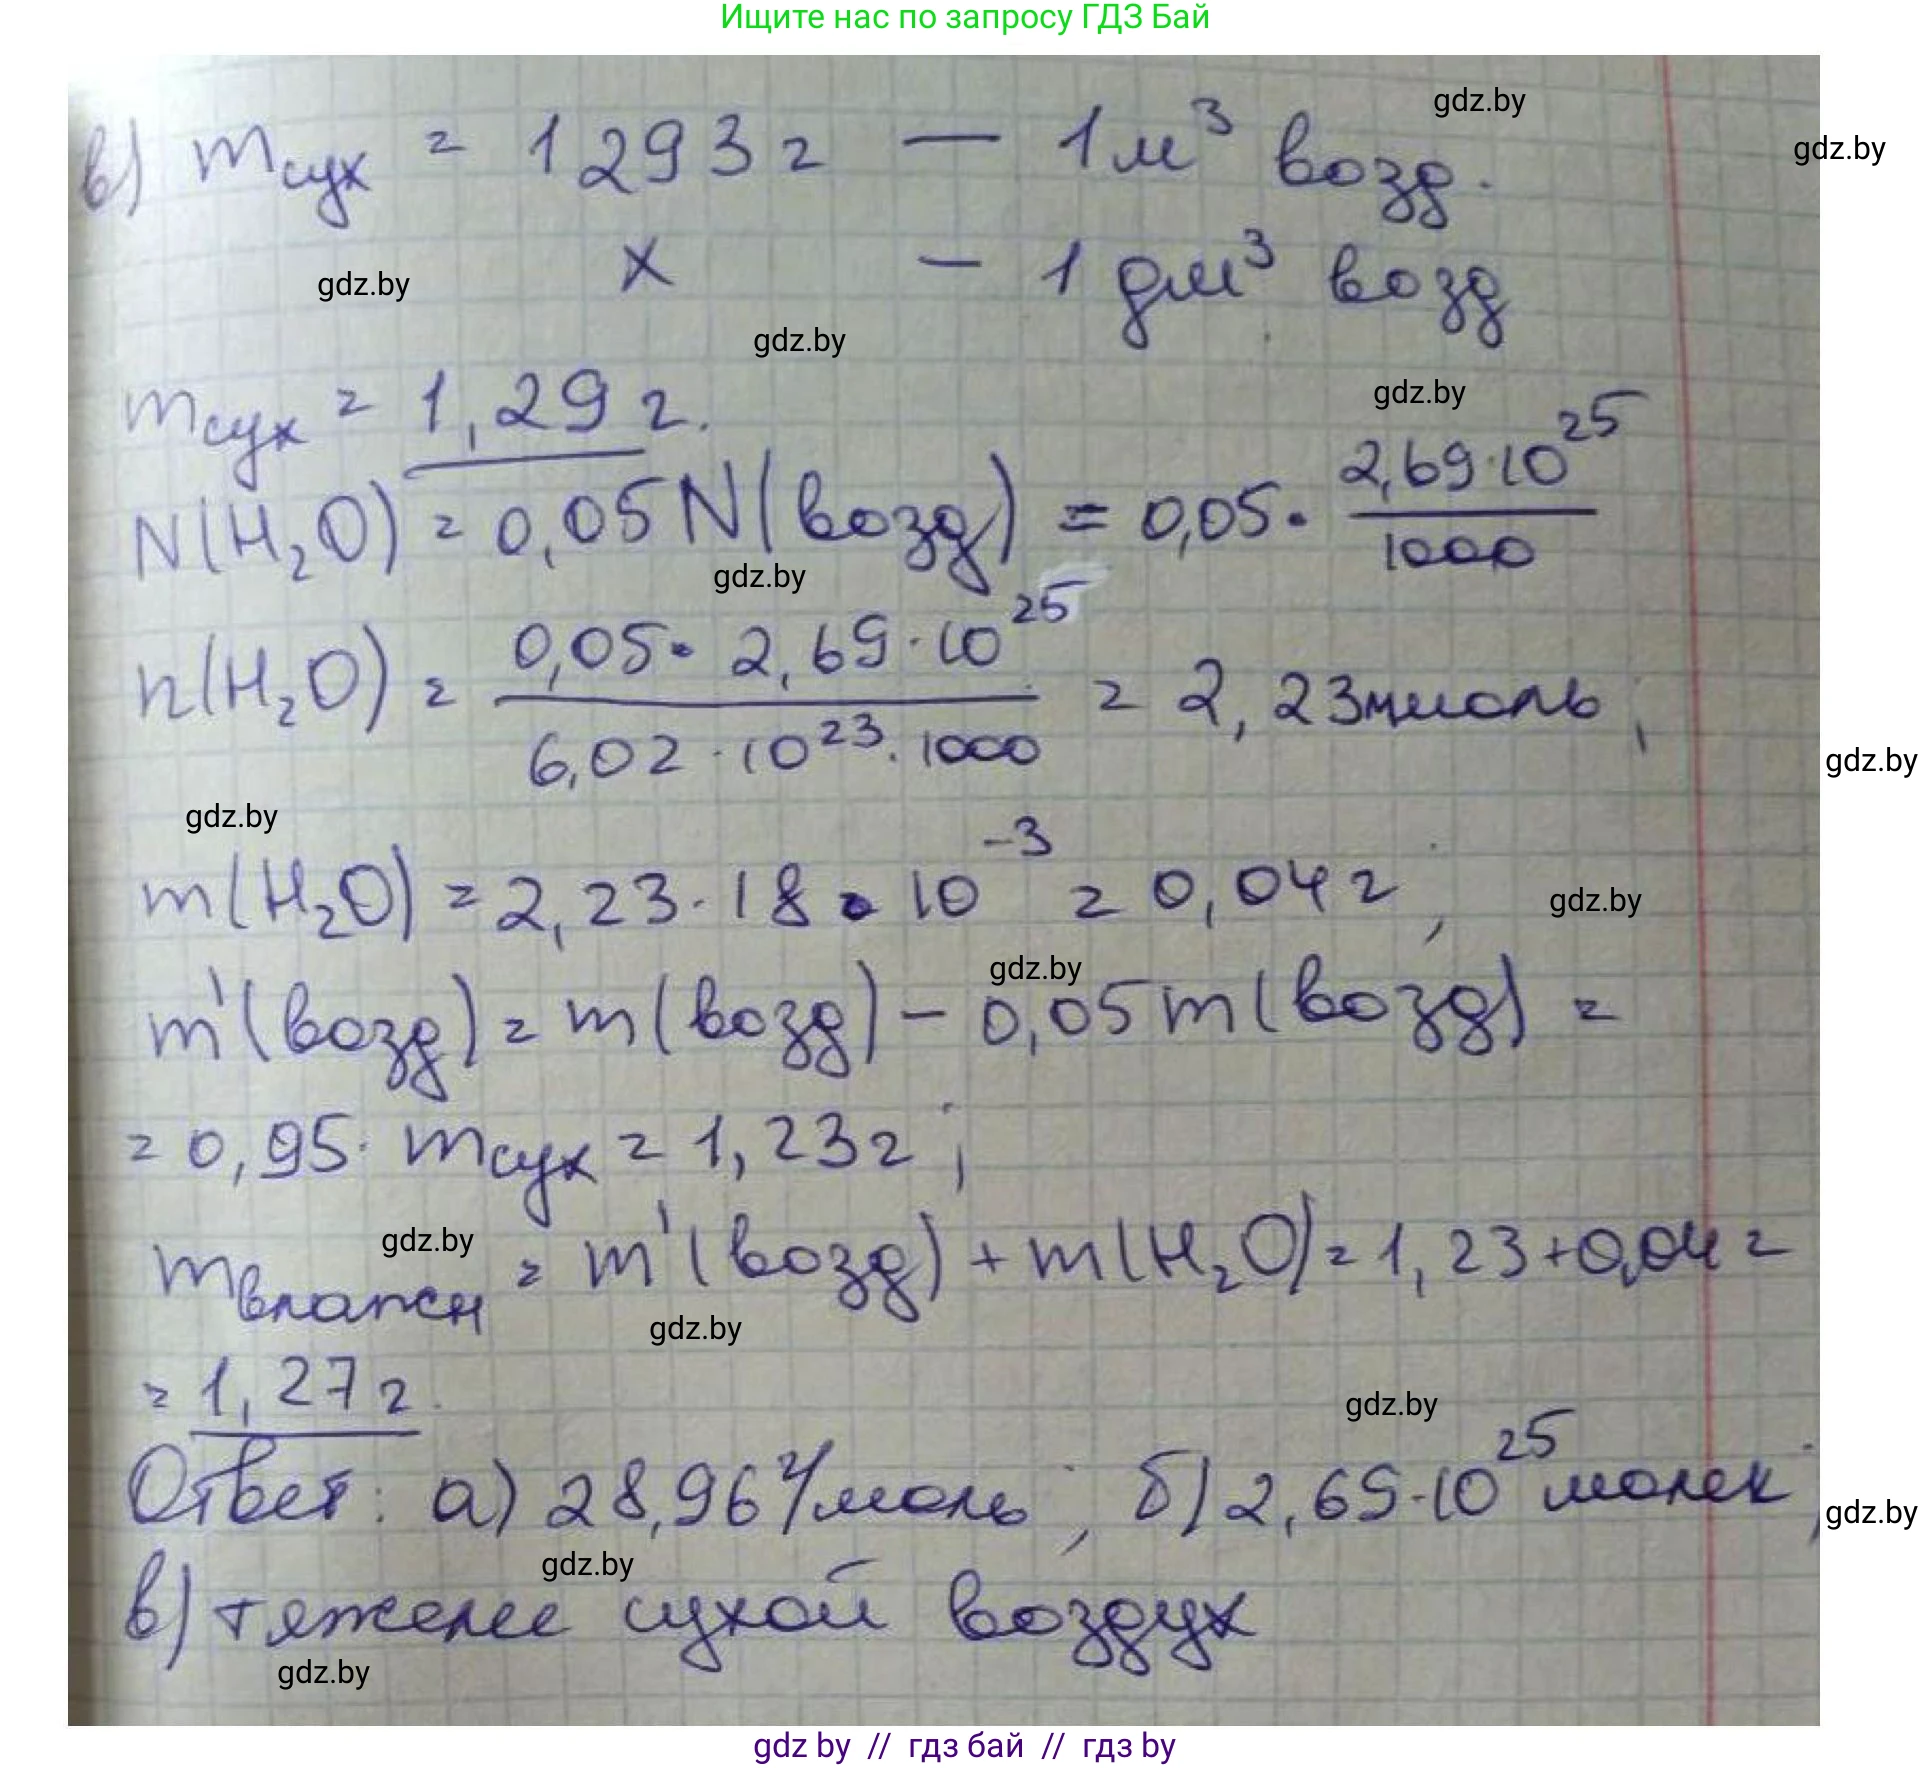 Ищите нас по запросу ГДЗ Бай
gdz.by
gdz.by
в) mсух = 1293 г — 1 м³ возд.
x — 1 дм³ возд
gdz.by
gdz.by
gdz.by
mсух = 1,29 г.
N(H₂O) = 0,05 N(возд) = 0,05 · 2,69·10²⁵ / 1000
gdz.by
n(H₂O) = 0,05 · 2,69·10²⁵ / 6,02·10²³·1000 = 2,23 ммоль;
gdz.by
gdz.by
m(H₂O) = 2,23·18·10⁻³ = 0,04 г;
gdz.by
gdz.by
m'(возд) = m(возд) − 0,05 m(возд) =
= 0,95· mсух = 1,23 г;
gdz.by
mвлажн = m'(возд) + m(H₂O) = 1,23 + 0,04 =
gdz.by
= 1,27 г.
gdz.by
Ответ: а) 28,96 г/моль; б) 2,69·10²⁵ молек;
gdz.by
gdz.by
в) тяжелее сухой воздух
gdz.by
gdz by // гдз бай // гдз by